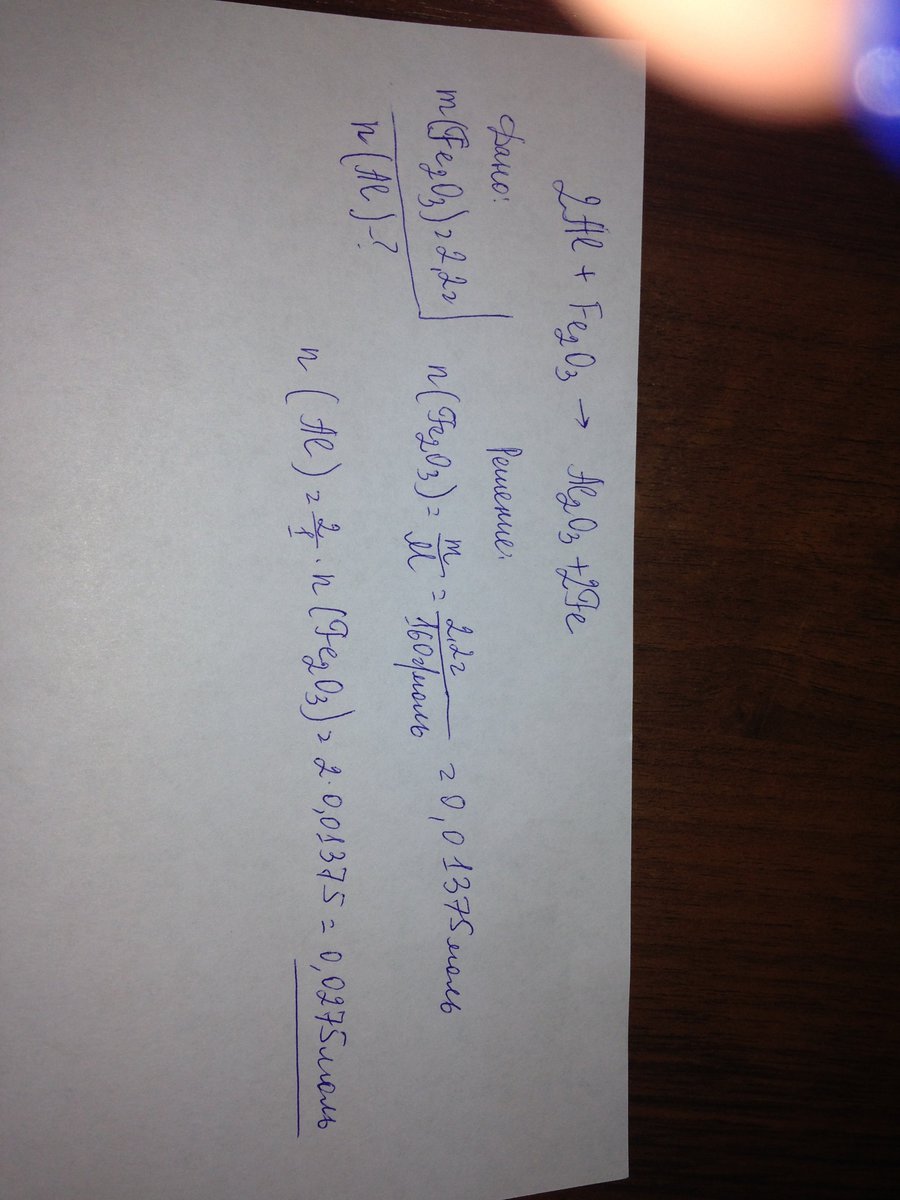 2Al + Fe₂O₃ → Al₂O₃ + 2Fe
Дано:
m(Fe₂O₃) = 2,2г
n(Al) - ?
Решение:
n(Fe₂O₃) = m/M = 2,2г/160г/моль = 0,01375моль
n(Al) = 2/1 · n(Fe₂O₃) = 2·0,01375 = 0,0275моль